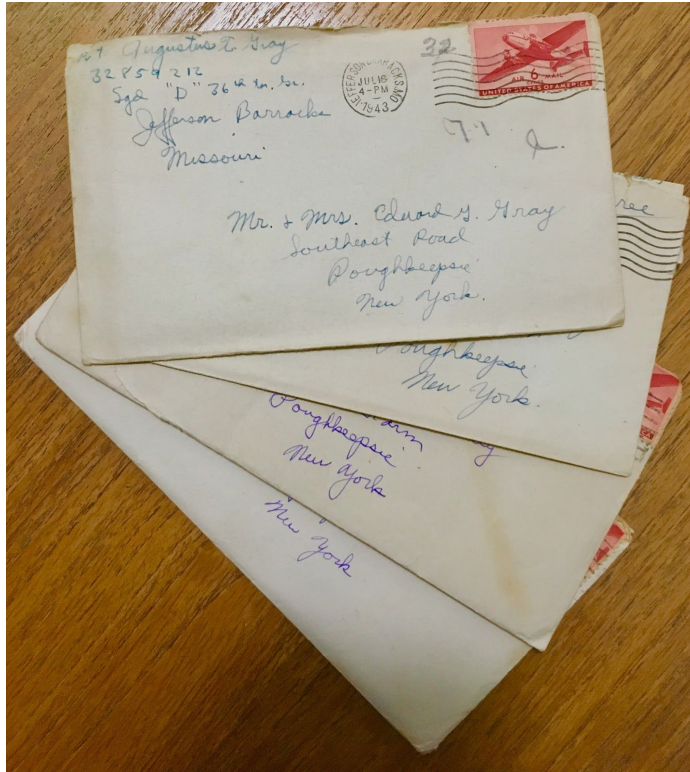 Augustus E. Gray
32859212
Sqd "D" 36th
Jefferson Barracks
Missouri
32
JEFFERSON BARRACKS, MO.
JUL 16
4-PM
1943
6¢
AIR MAIL
UNITED STATES OF AMERICA
Mr. & Mrs. Edward G. Gray
Southeast Road
Poughkeepsie
New York.
Poughkeepsie
New York.
Poughkeepsie
New York
New York